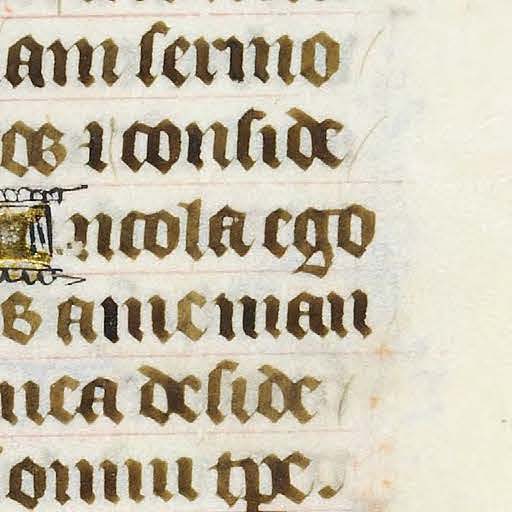 am sermo
os ⁊ conside
Incola ego
s a me man
mea deside
omni tpe.